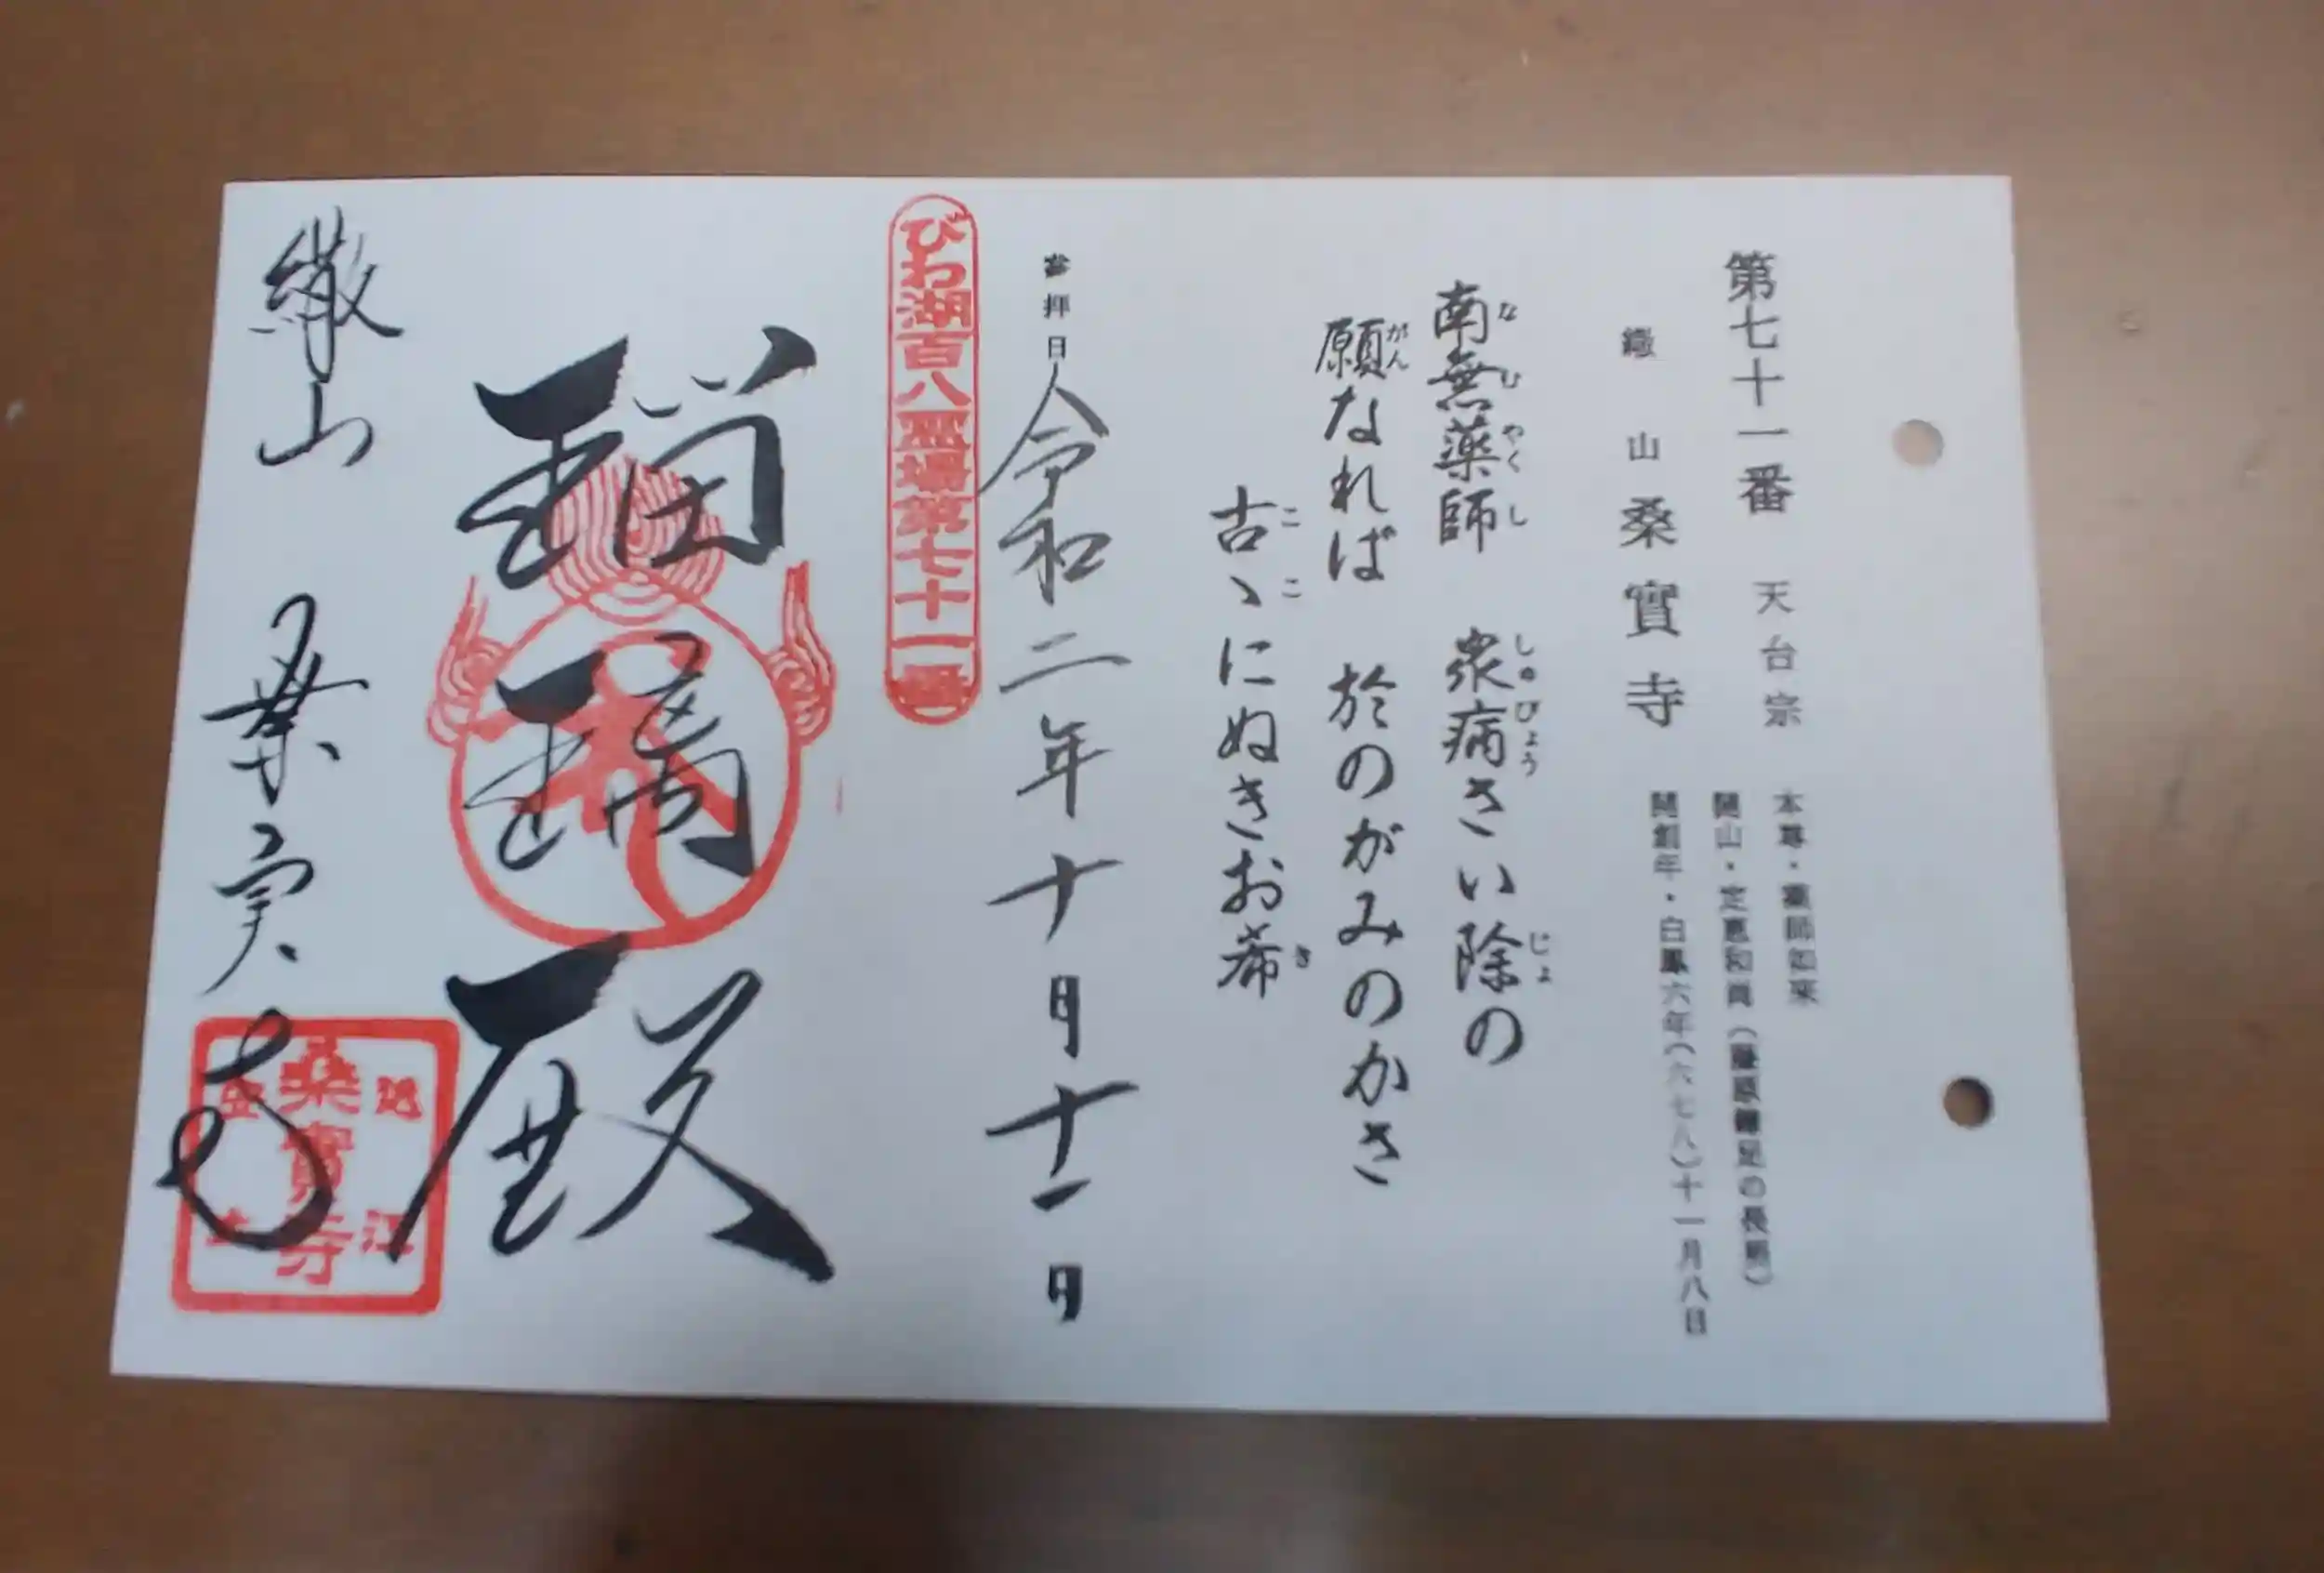 第七十一番 天台宗
本尊・薬師如来
開山・定惠和尚(藤原鎌足の長男)
開創年・白鳳六年(六七八)十一月八日
繖山桑實寺
南無薬師 衆病さい除の
なむやくし しゅびょう じょ
願なれば 於のがみのかさ
がん
古ゝにぬきお希
ここ き
参拝日
令和二年十月十一日
びわ湖百八霊場第七十一番
瑠璃殿
繖山 桑実寺
近江
桑實寺